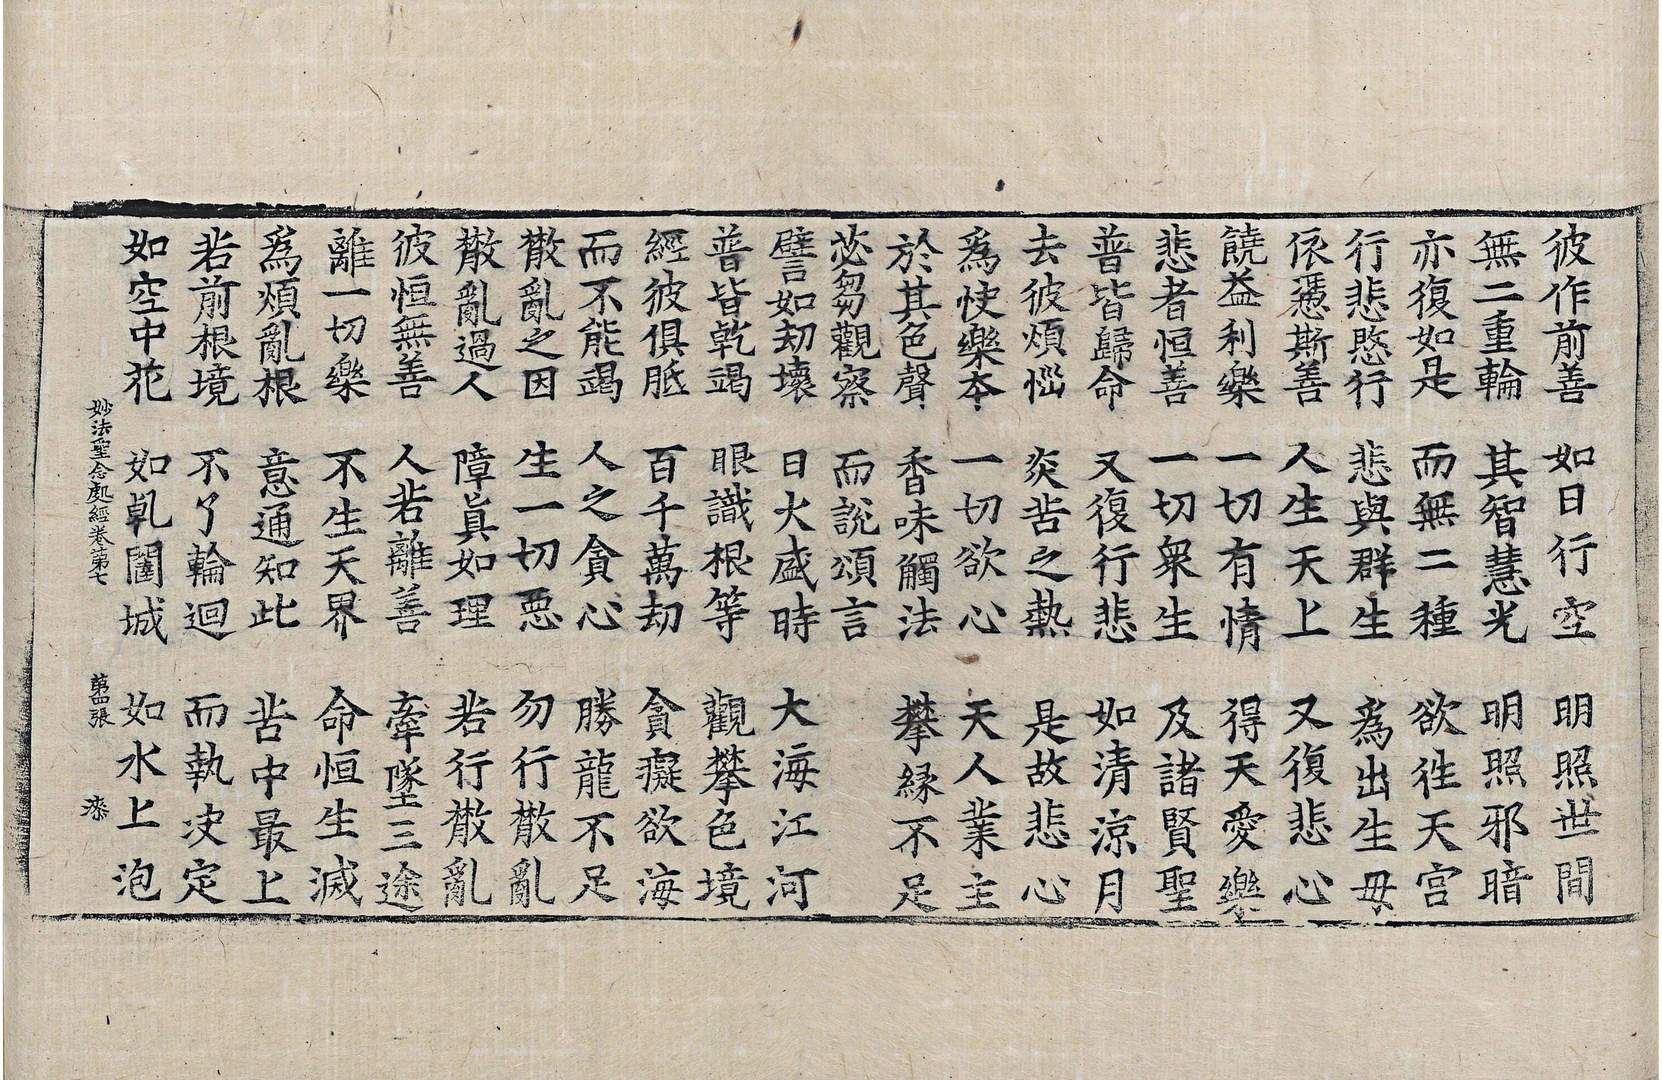 彼作前善 如日行空 明照世間
無二重輪 其智慧光 明照邪暗
亦復如是 而無二種 欲往天宮
行悲愍行 悲與群生 為出生母
依慿斯善 人生天上 又復悲心
饒益利樂 一切有情 得天愛樂
悲者恒善 一切衆生 及諸賢聖
普皆歸命 又復行悲 如清涼月
去彼煩惱 炎苦之熱 是故悲心
為快樂本 一切欲心 天人業主
於其色聲 香味觸法 攀緣不足
苾芻觀察 而說頌言
譬如劫壞 日火盛時 大海江河
普皆乾竭 眼識根等 觀攀色境
經彼俱胝 百千萬劫 貪癡欲海
而不能竭 人之貪心 勝龍不足
散亂之因 生一切惡 勿行散亂
散亂過人 障眞如理 若行散亂
彼恒無善 人若離善 牽墜三途
離一切樂 不生天界 命恒生滅
為煩亂根 意通知此 苦中最上
若前根境 不了輪迴 而執決定
如空中花 如乹闥城 如水上泡
妙法聖念處經卷第七 第四張 柒